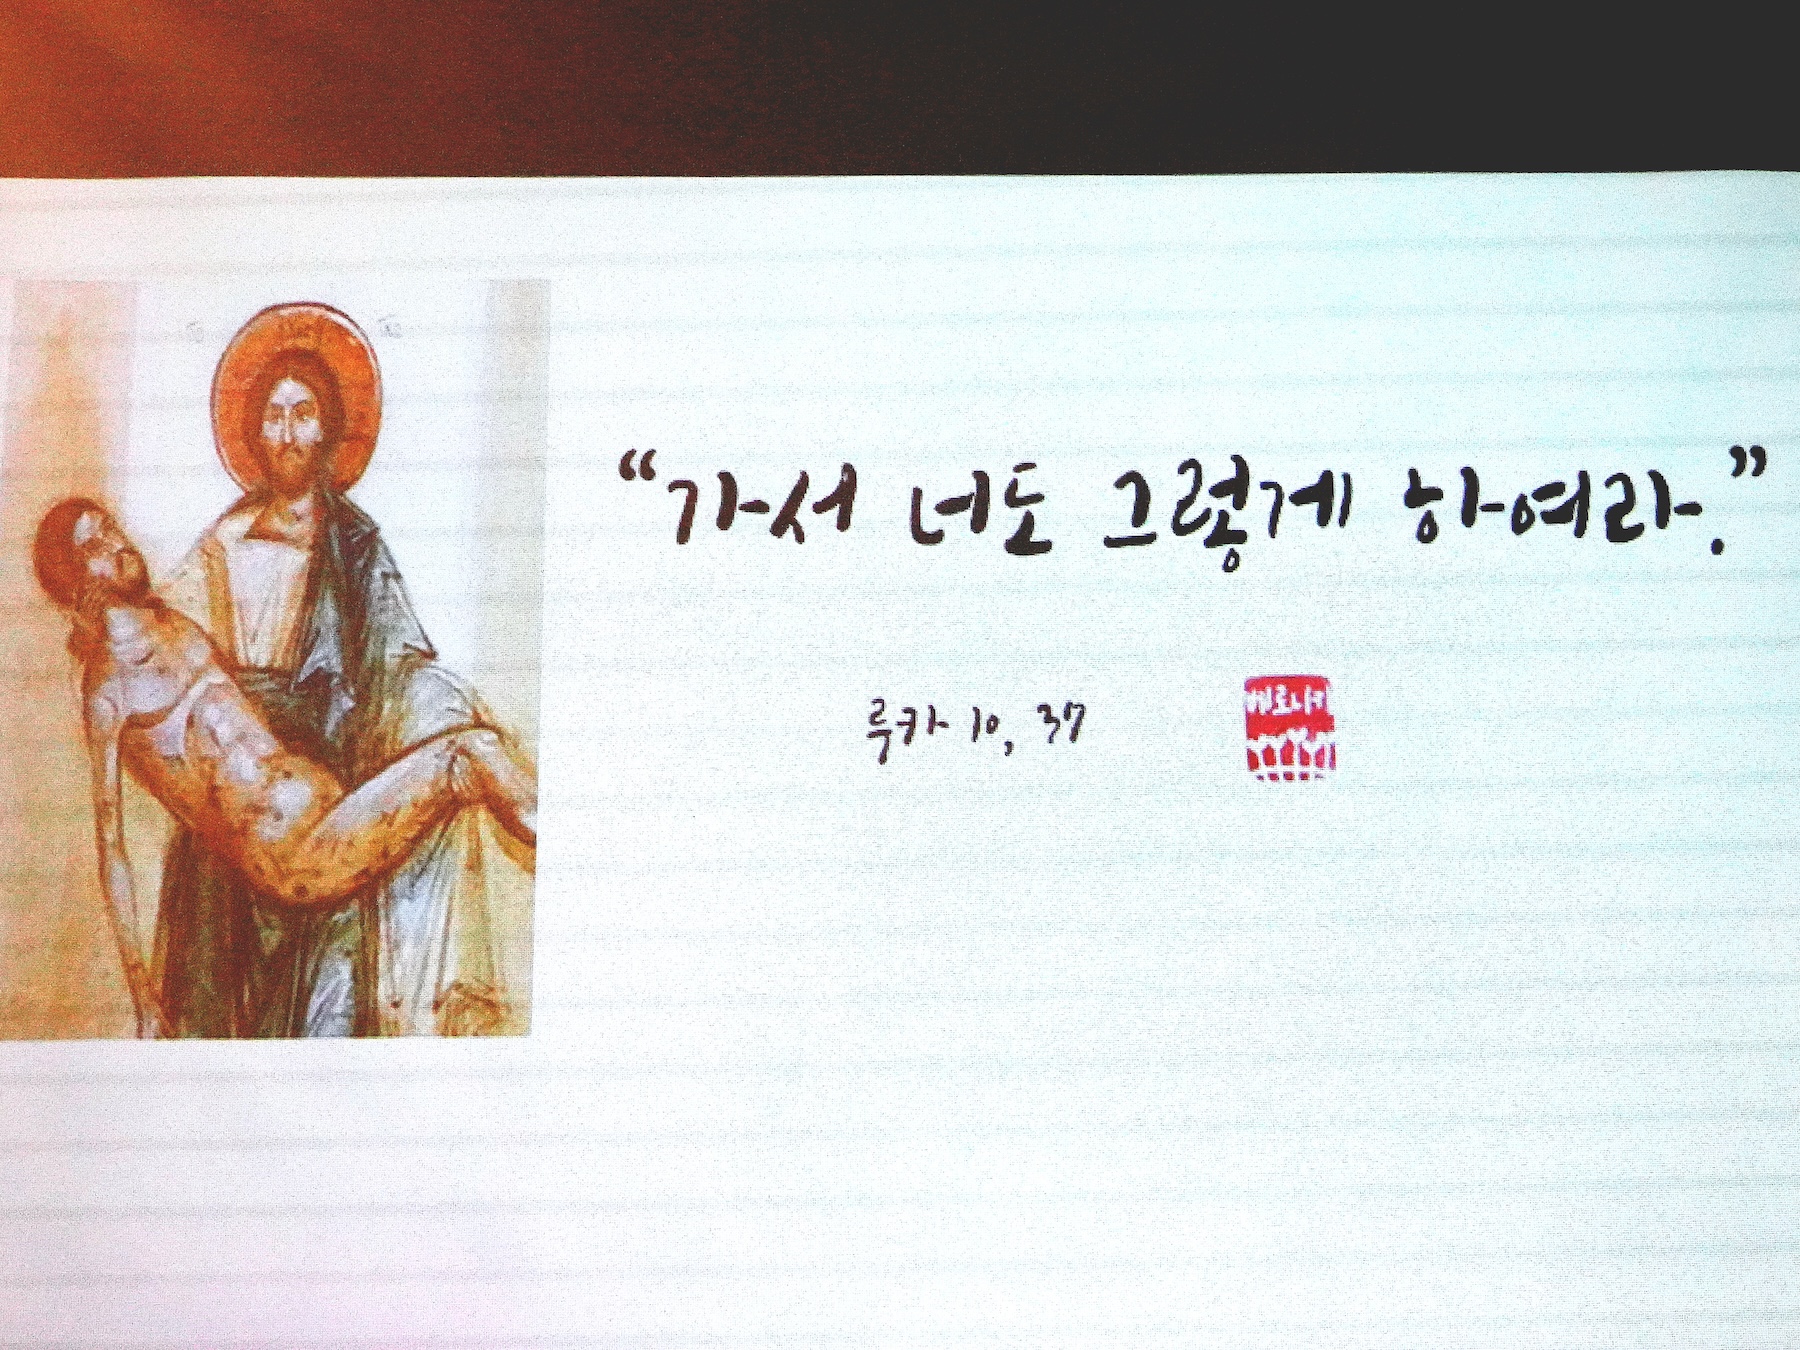 “가서 너도 그렇게 하여라.”
루카 10, 37
베로니카